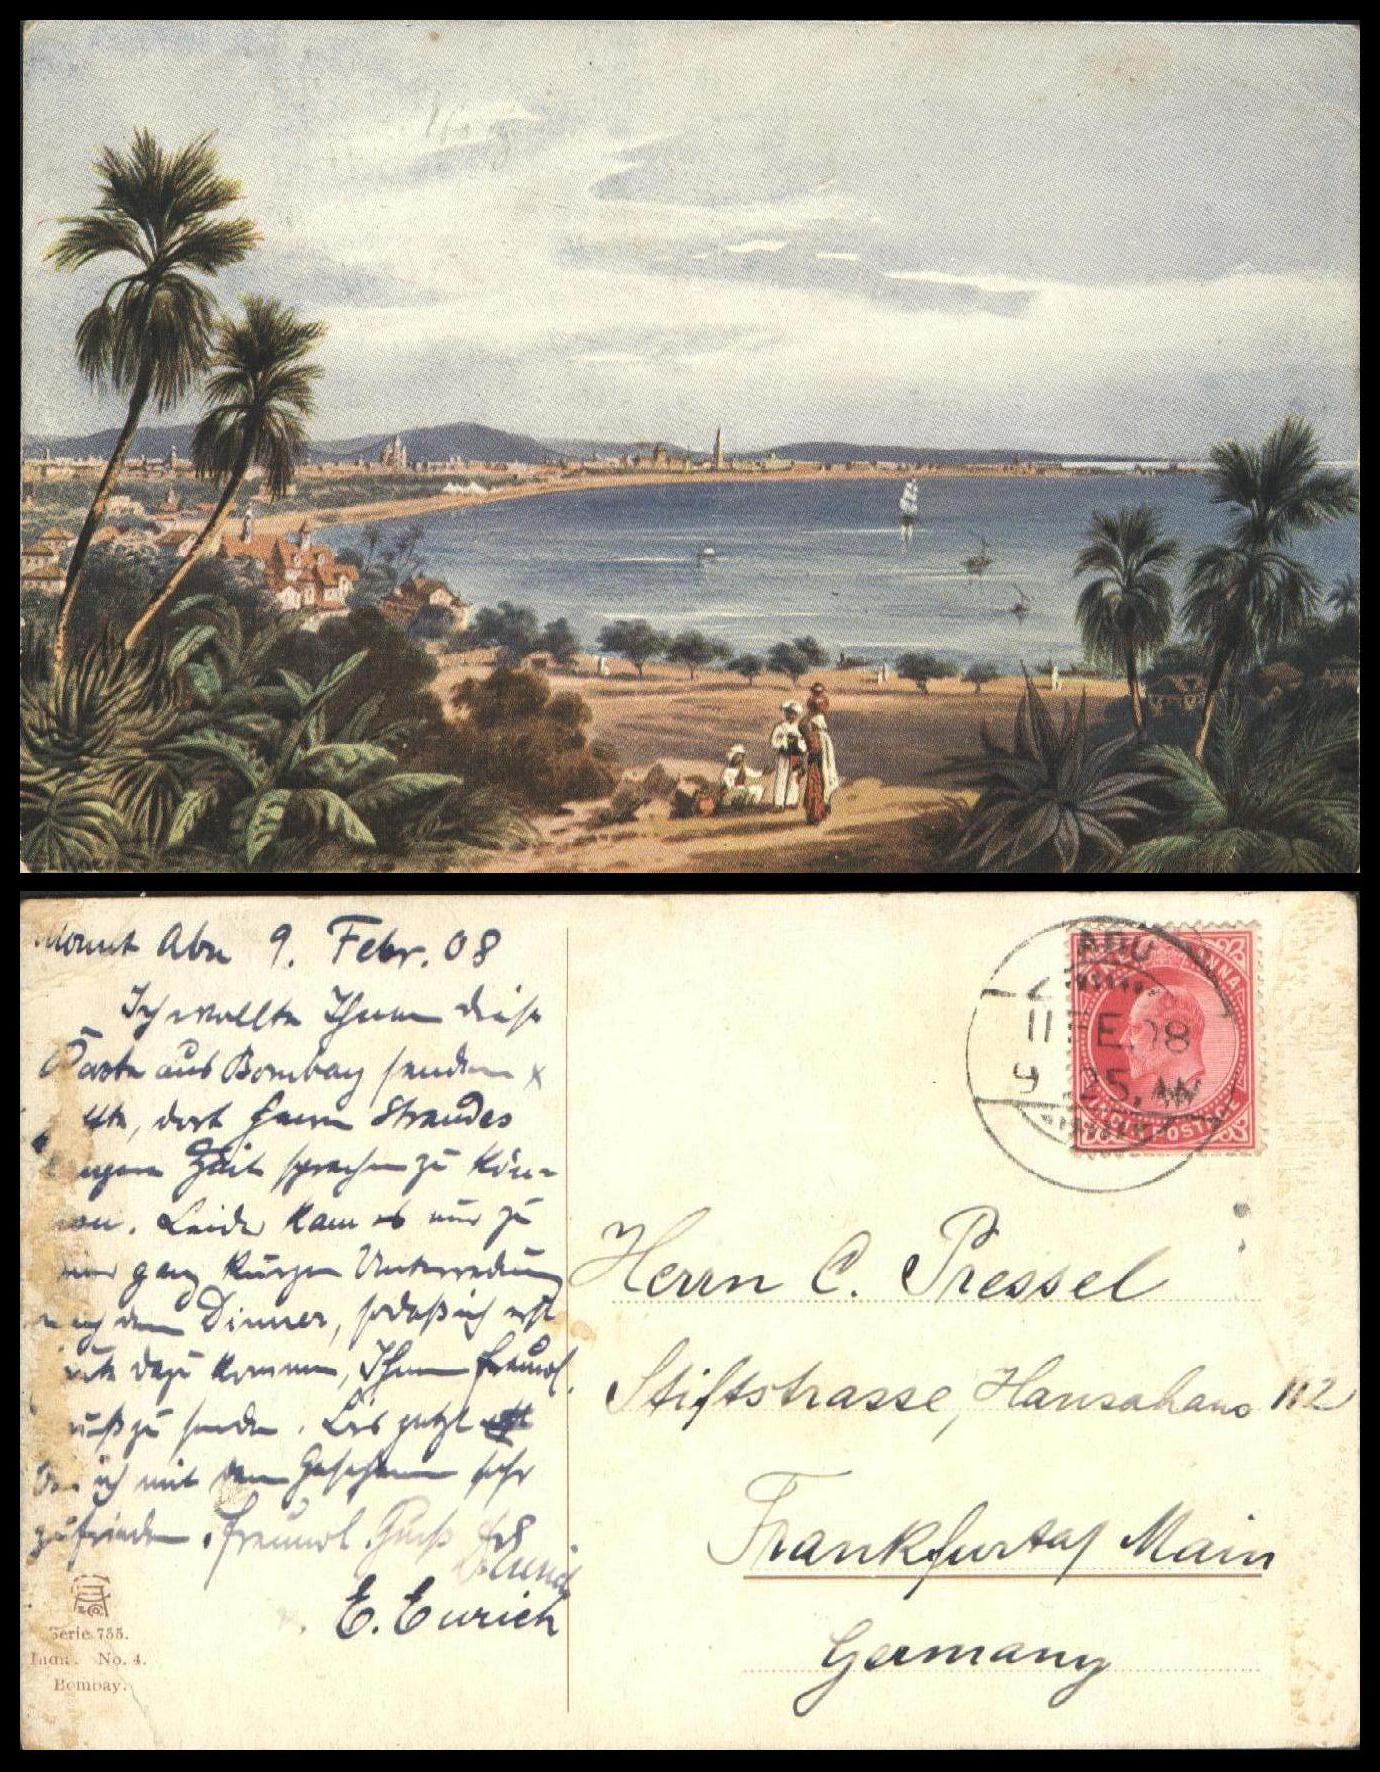 Mount Abu 9. Febr. 08
Ich wollte Ihnen diese
Karte aus Bombay senden
dort Herrn Strandes
Zeit sprechen zu kön-
nen. Leider kam es nur zu
ganz kurzen Unterredung
nach dem Dinner, sodaß ich erst
dazu kommen, Ihnen freundl.
Gruß zu senden. Bis jetzt
bin ich mit den Geschäften sehr
zufrieden. Freundl. Gruß
E. Eurich
Serie 755.
India. No. 4.
Bombay.
ABU
11 FE. 08
9 25. AM
ANNA
POSTAGE
Herrn C. Pressel
Stiftstrasse, Hansahaus 112
Frankfurt a/ Main
Germany